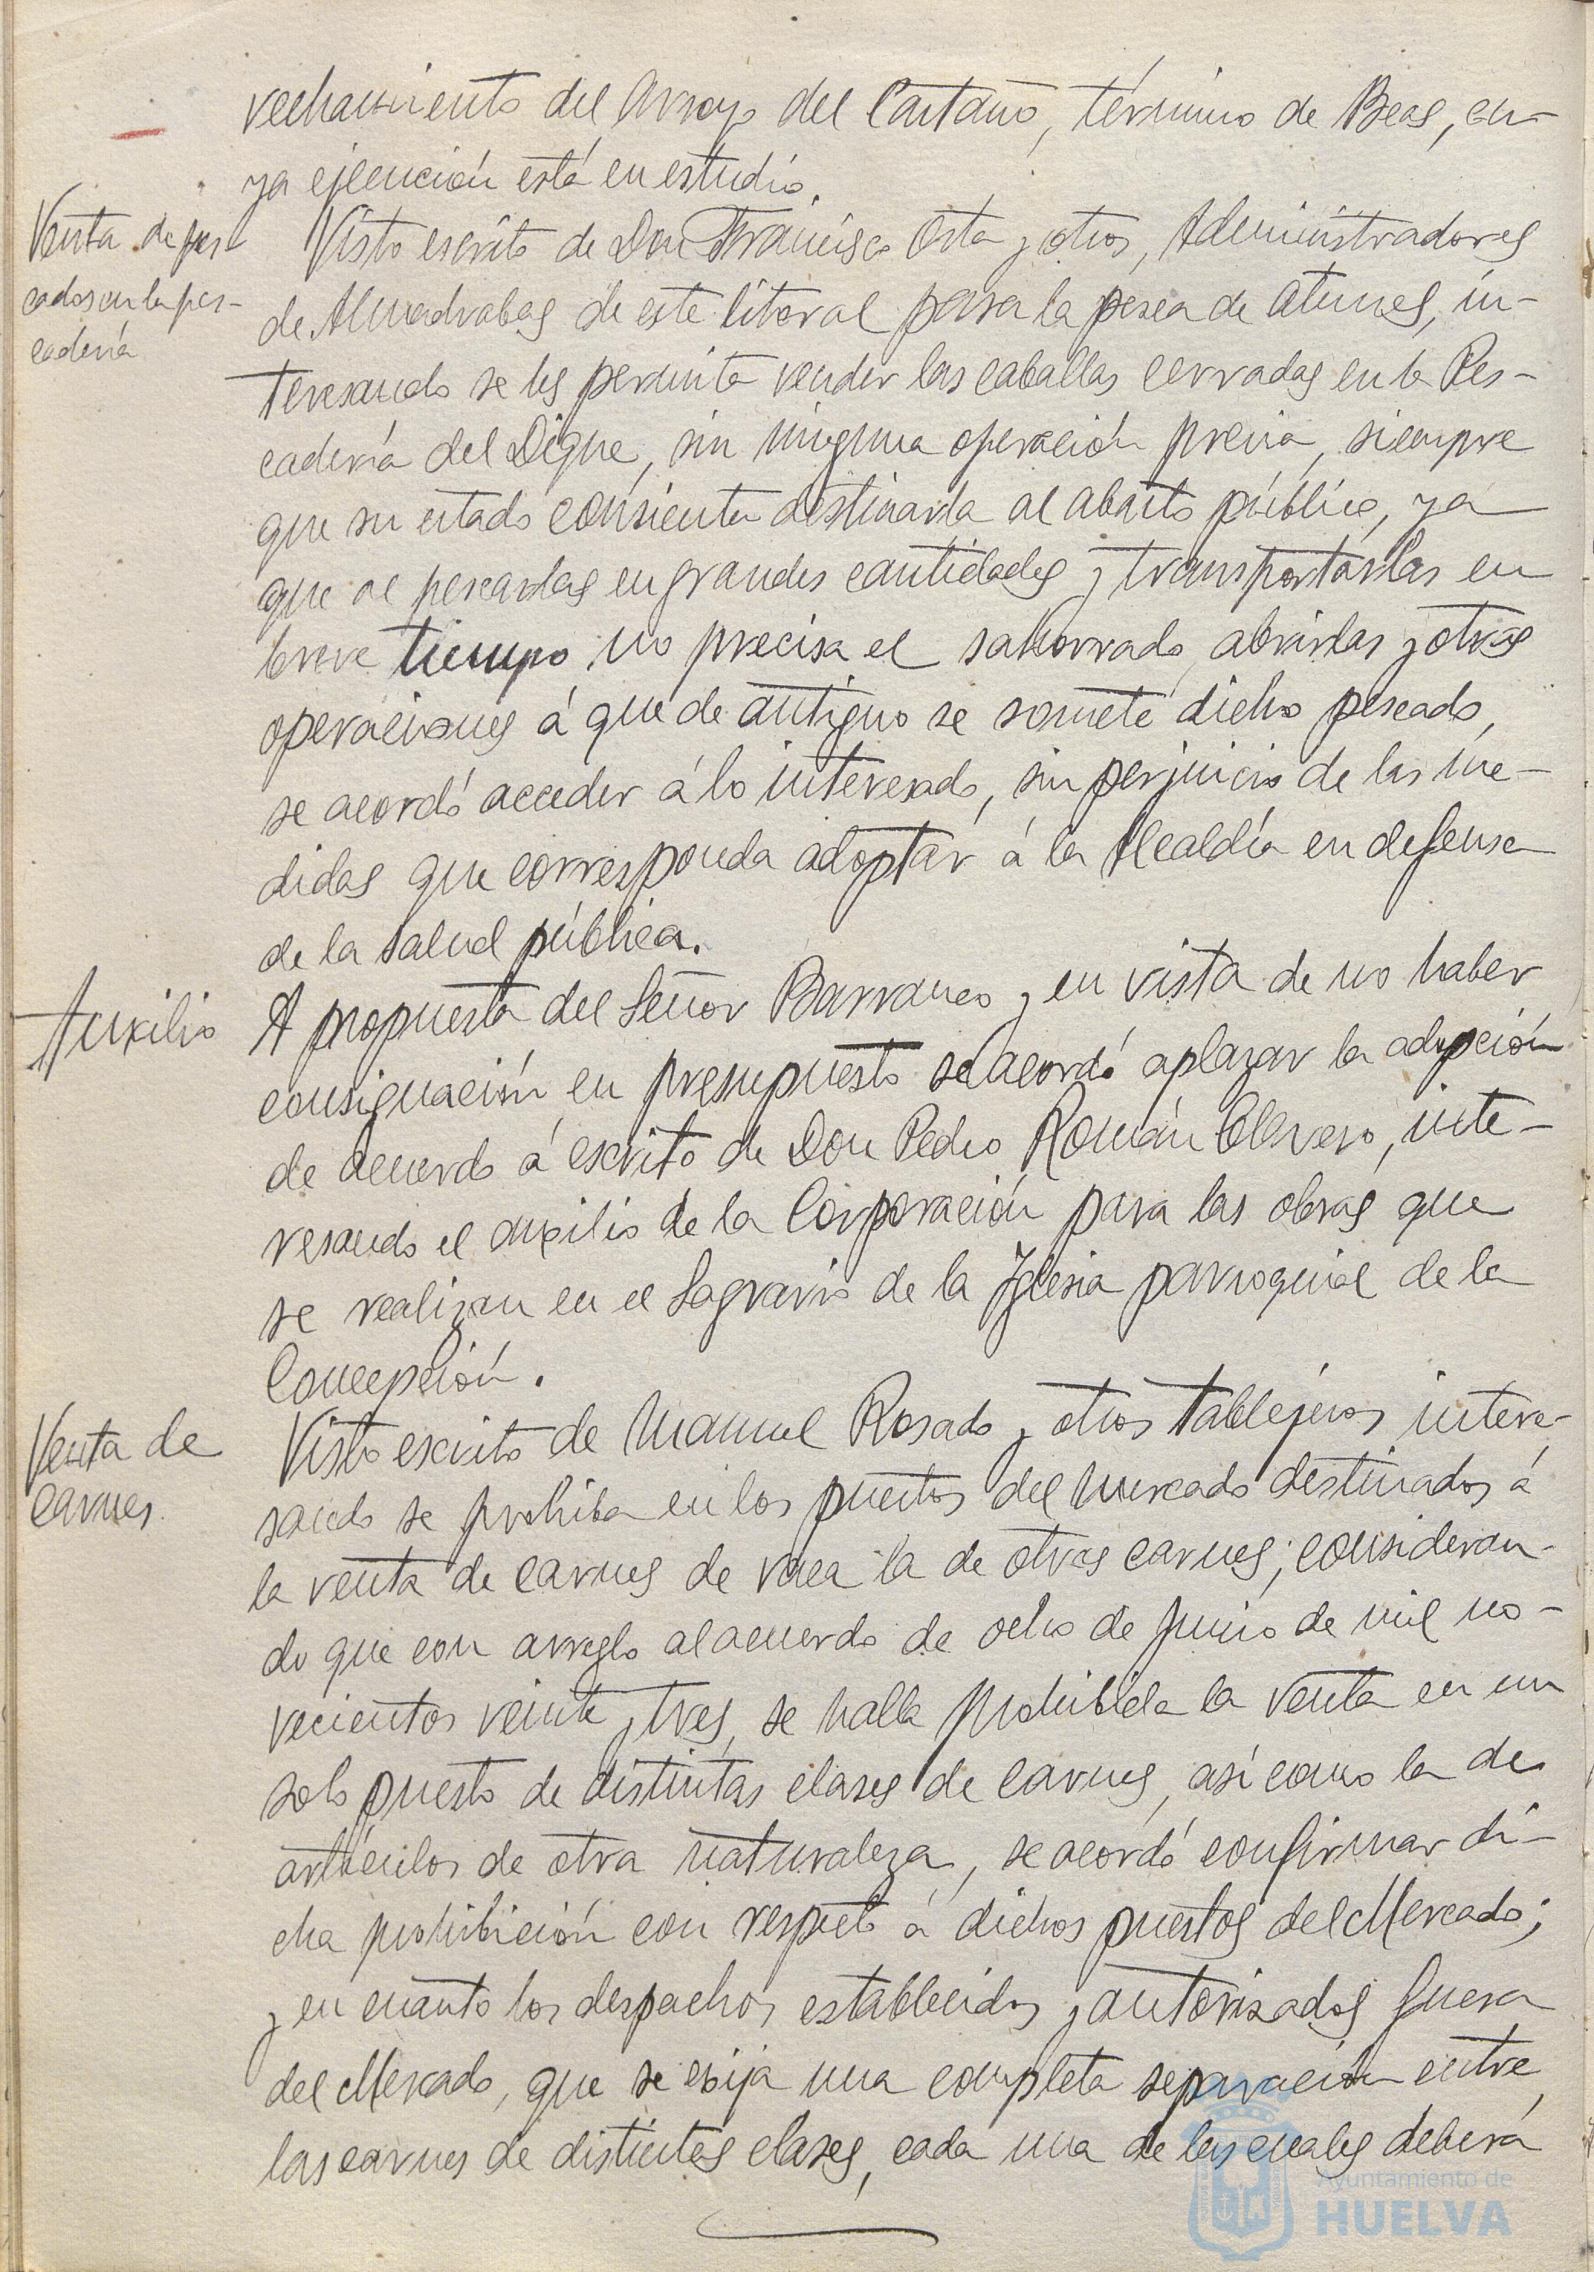 vechamiento del Arroyo del Castaño, término de Beas, cu-
ya ejecución está en estudio.
Venta de pes-
cados en la pes-
cadería
Visto escrito de Don Francisco Osta y otros, Administradores
de Almadrabas de este litoral para la pesca de atunes, in-
teresando se les permita vender las caballas cerradas en la Pes-
cadería del Dique, sin ninguna operación previa, siempre
que su estado consienta destinarla al abasto público, ya
que al pescarlas en grandes cantidades y transportarlas en
breve tiempo, no precisa el sahorrado, abrirlas y otras
operaciones á que de antiguo se somete dicho pescado,
se acordó acceder á lo interesado, sin perjuicio de las me-
didas que corresponda adoptar á la Alcaldía en defensa
de la salud pública.
Auxilio
A propuesta del Señor Barranco y en vista de no haber
consignación en presupuesto se acordó aplazar la adopción
de acuerdo á escrito de Don Pedro Román Clavero, inte-
resando el auxilio de la Corporación para las obras que
se realizan en el Sagrario de la Iglesia parroquial de la
Concepción.
Venta de
carnes.
Visto escrito de Manuel Rosado y otros tablejeros intere-
sando se prohiba en los puestos del Mercado destinados á
la venta de carnes de vaca la de otras carnes; consideran-
do que con arreglo al acuerdo de ocho de Junio de mil no-
vecientos veinte y tres, se halla prohibida la venta en un
solo puesto de distintas clases de carnes, así como la de
artículos de otra naturaleza, se acordó confirmar di-
cha prohibición con respecto á dichos puestos del Mercado;
y en cuanto los despachos establecidos y autorizados fuera
del Mercado, que se exija una completa separación entre
las carnes de distintas clases, cada una de las cuales deberá
Ayuntamiento de
HUELVA